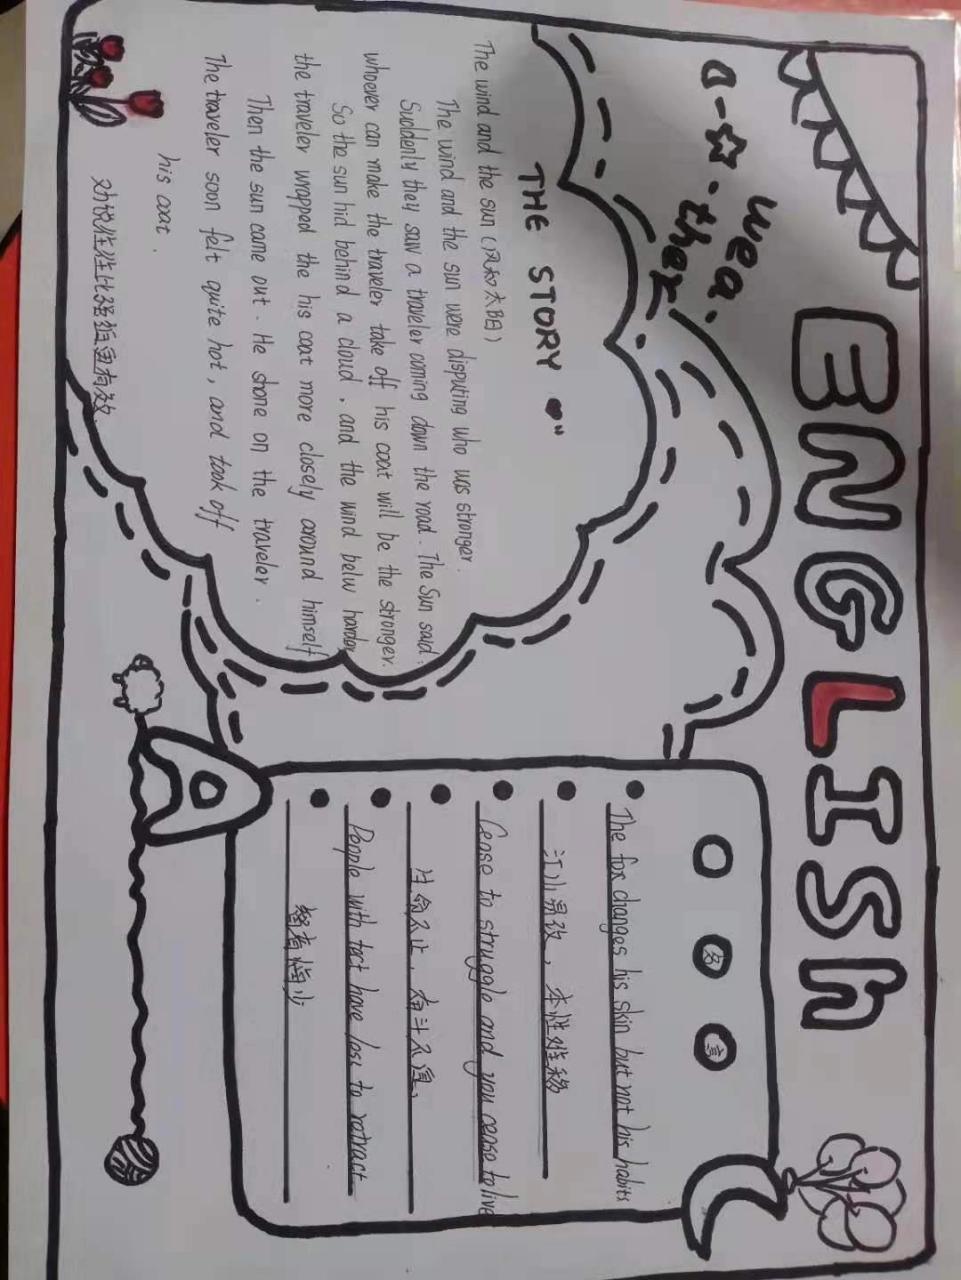 ENGLISh
a-☆.
wea.
ther
THE STORY
The wind and the sun (风和太阳)
The wind and the sun were disputing who was stronger.
Suddenly they saw a traveler coming down the road. The Sun said:
whoever can make the traveler take off his coat will be the stronger.
So the sun hid behind a cloud, and the wind belw harder
the traveler wrapped the his coat more closely around himself
Then the sun come out. He shone on the traveler.
The traveler soon felt quite hot, and took off
his coat.
劝说往往比强迫更有效
名言
The fox changes his skin but not his habits
江山易改，本性难移
Cease to struggle and you cease to live
生命不止，奋斗不息,
People with tact have less to retract
智者悔少